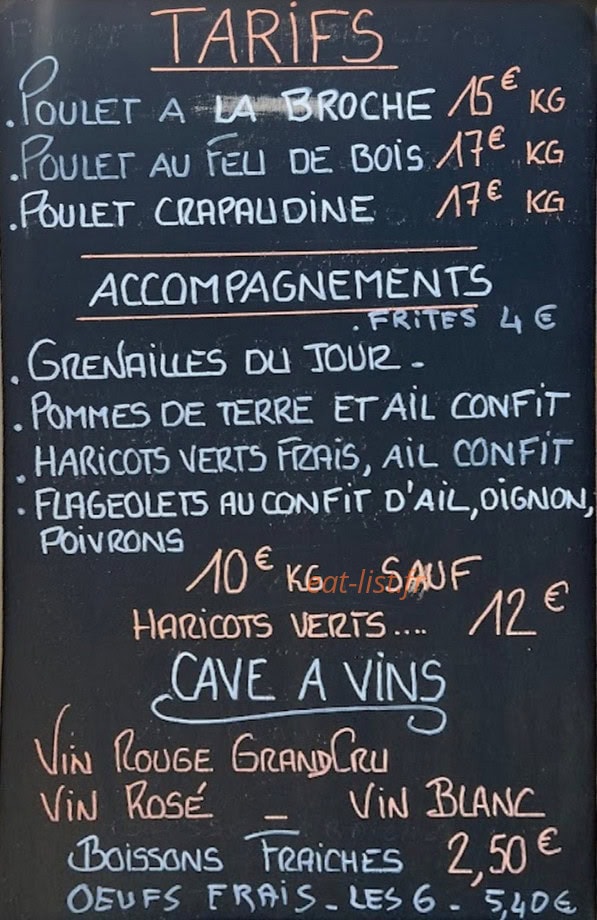 TARIFS
. POULET A LA BROCHE 15€ KG
. POULET AU FEU DE BOIS 17€ KG
. POULET CRAPAUDINE 17€ KG
ACCOMPAGNEMENTS
. FRITES 4 €
. GRENAILLES DU JOUR -
. POMMES DE TERRE ET AIL CONFIT
. HARICOTS VERTS FRAIS, AIL CONFIT
. FLAGEOLETS AU CONFIT D'AIL, OIGNON,
POIVRONS
10€ KG SAUF
eat-list.fr
HARICOTS VERTS.... 12€
CAVE A VINS
VIN ROUGE GRAND CRU
VIN ROSÉ _ VIN BLANC
BOISSONS FRAICHES 2,50€
OEUFS FRAIS - LES 6 - 5,40€